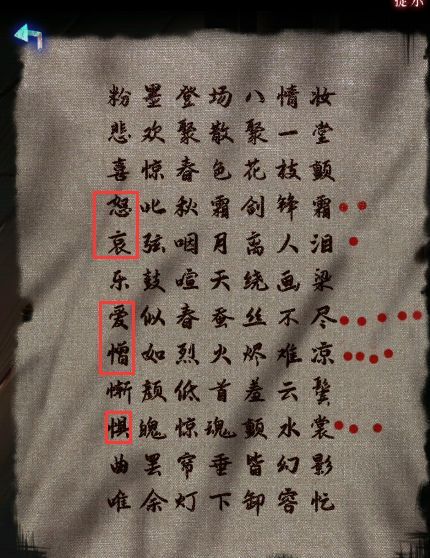 提示
粉墨登场八情妆
悲欢聚散聚一堂
喜惊春色花枝颤
怒叱秋霜剑锋霜
哀弦咽月离人泪
乐鼓喧天绕画梁
爱似春蚕丝不尽
憎如烈火烬难凉
惭颜低首羞云鬓
惧魄惊魂颤水裳
曲罢帘垂皆幻影
唯余灯下卸容忙